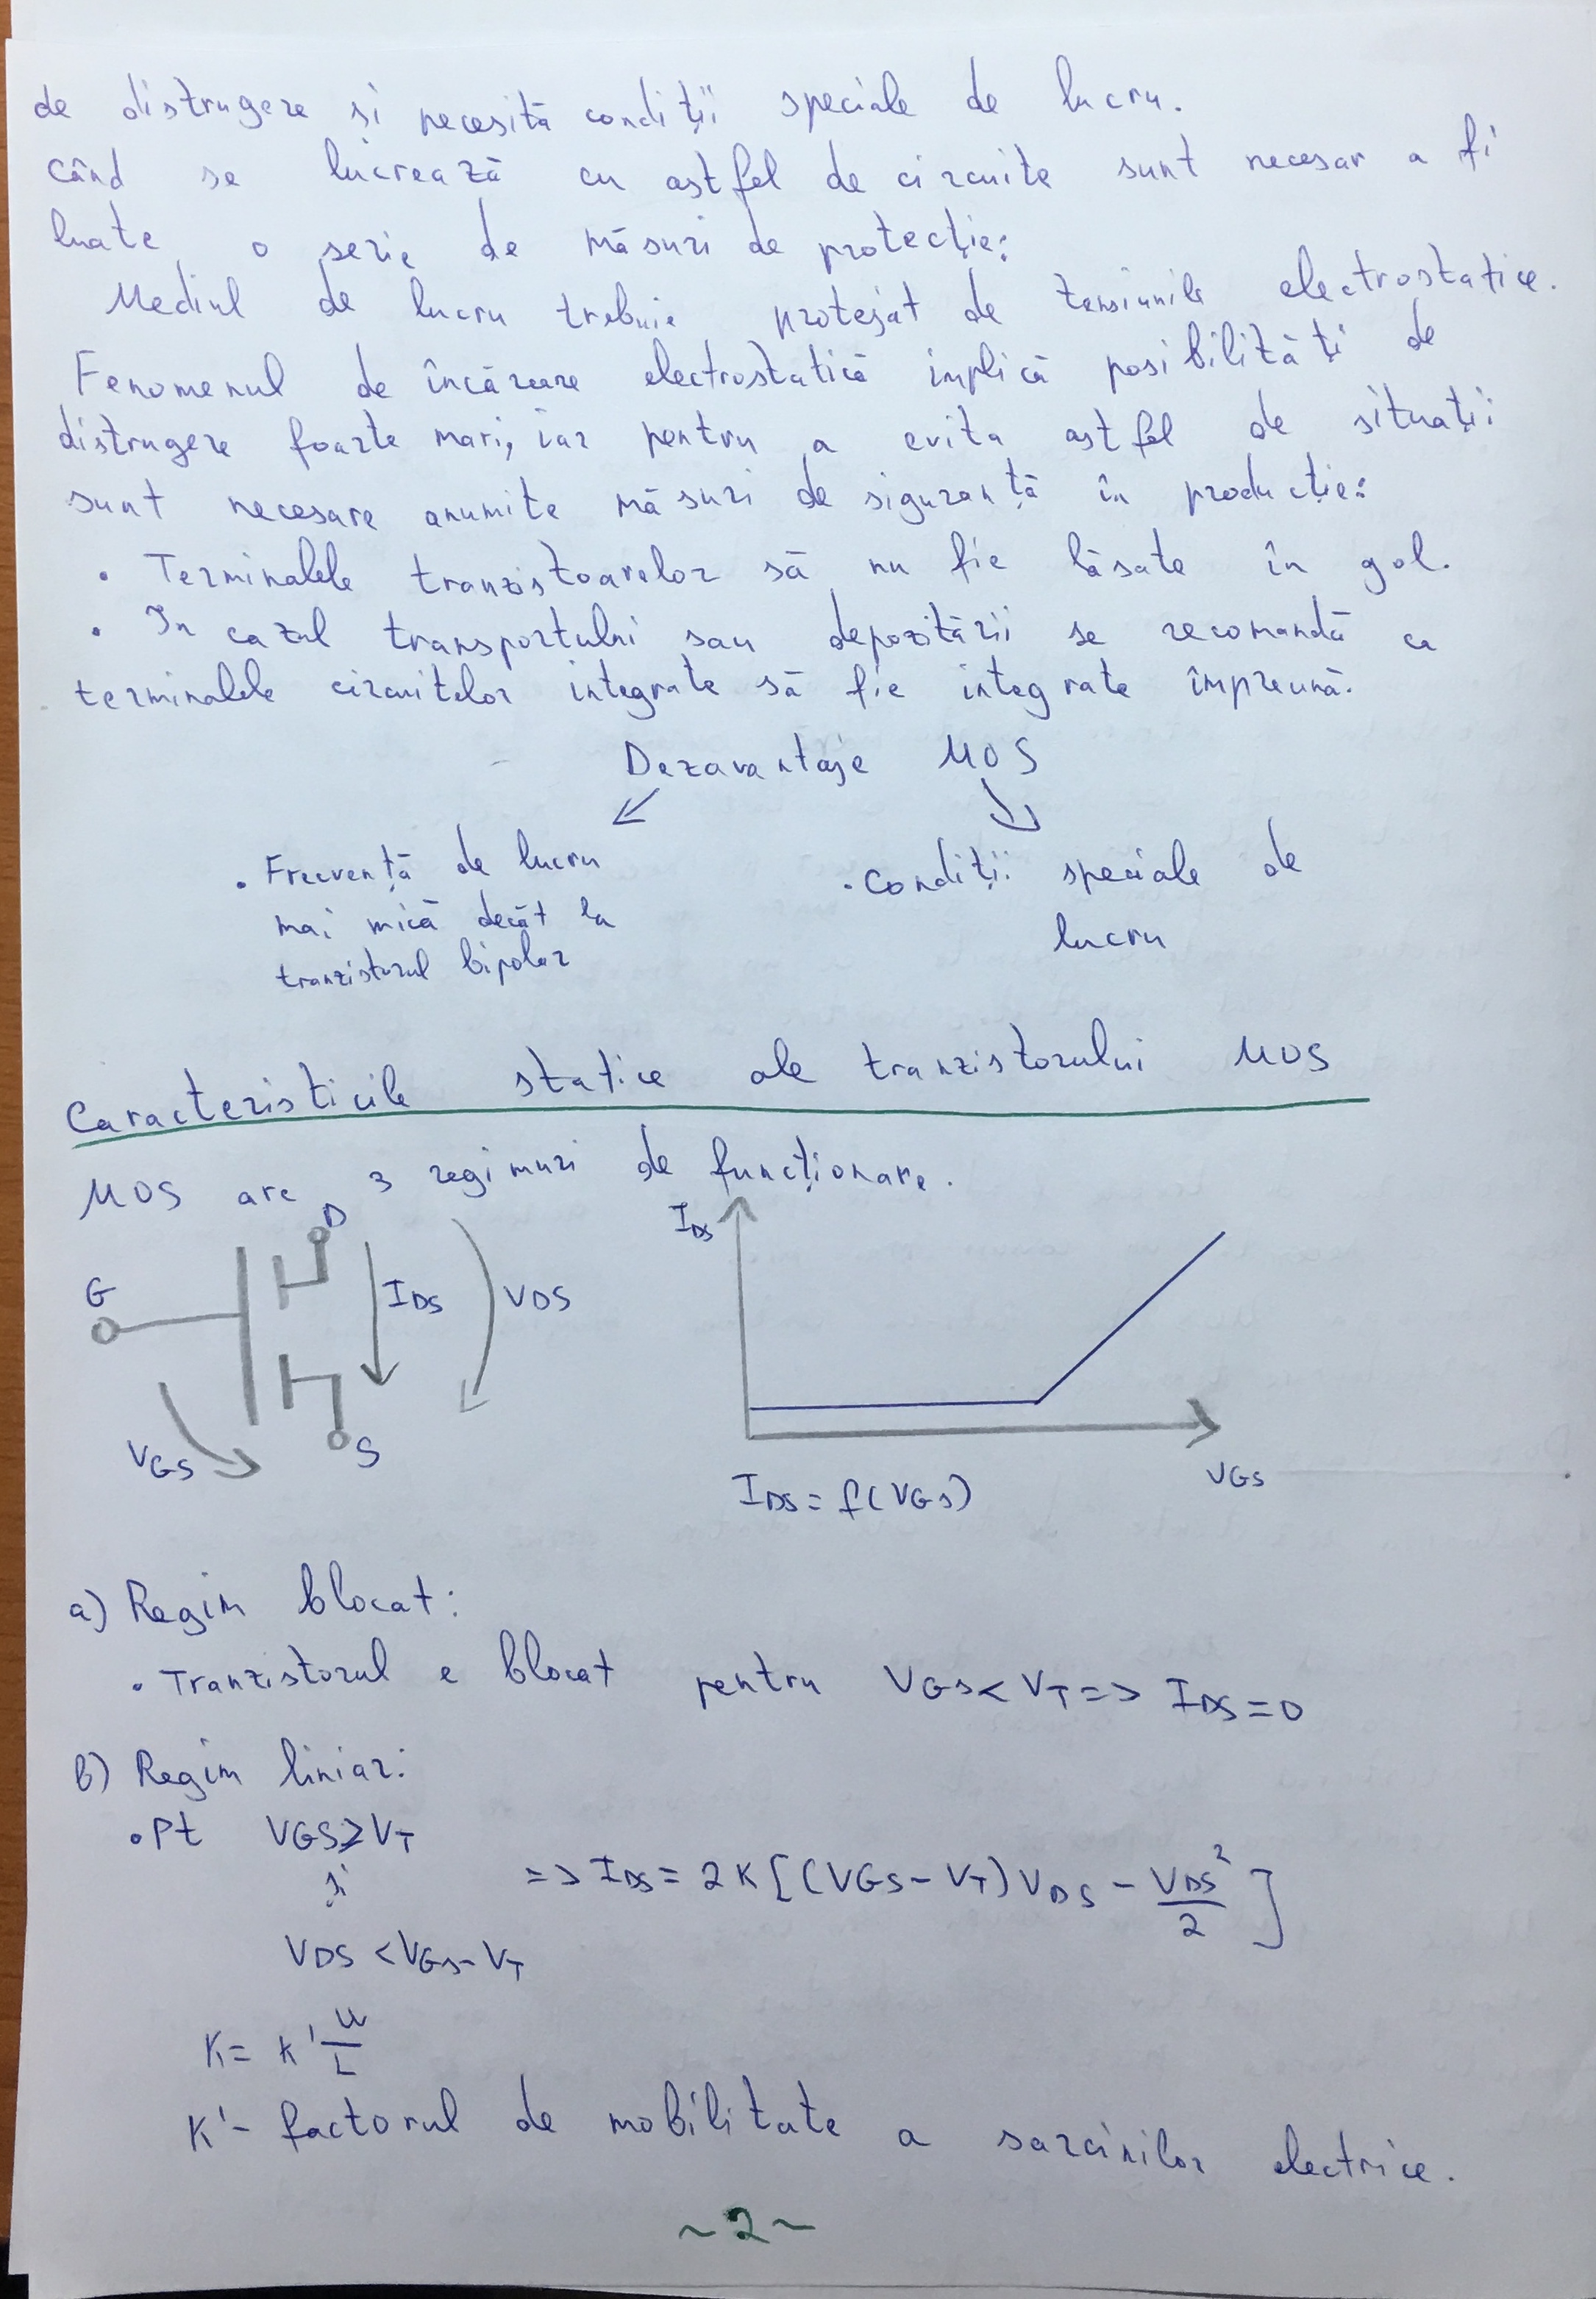 de distrugere si necesită condiții speciale de lucru.
când se lucrează cu astfel de circuite sunt necesar a fi
luate o serie de măsuri de protecție:
Mediul de lucru trebuie protejat de tensiunile electrostatice.
Fenomenul de încărcare electrostatică implică posibilități de
distrugere foarte mari, iar pentru a evita astfel de situații
sunt necesare anumite măsuri de siguranță în producție:
• Terminalele tranzistoarelor să nu fie lăsate în gol.
• In cazul transportului sau depozitării se recomandă ca
terminalele circuitelor integrate să fie integrate împreună.
Dezavantaje MOS
• Frecvență de lucru
mai mică decât la
tranzistorul bipolar
• Condiții speciale de
lucru
Caracteristicile statice ale tranzistorului MOS
MOS are 3 regimuri de funcționare.
D
G
IDS
VDS
VGS
S
IDS
VGS
IDS = f(VGS)
a) Regim blocat:
• Tranzistorul e blocat pentru VGS < VT => IDS = 0
b) Regim liniar:
• Pt VGS ≥ VT
și
=> IDS = 2K[(VGS - VT)VDS - VDS²/2]
VDS < VGS - VT
K = K' W/L
K' - factorul de mobilitate a sarcinilor electrice.
~2~